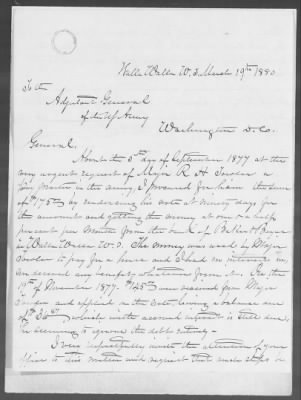 Walla Walla W.T. March 19th 1880
To the
Adjutant General
of the U.S. Army
Washington D.C.
General.
About the 5th day of September 1877 at the
very urgent request of Major R. H. Towler a
Pay master in the army, I procured for him the sum
of $175 by endorsing his note at ninety days for
the amount and getting the money at one & a half
percent per month from the bank of Baker & Boyer
in Walla Walla W.T. The money was used by Major
Towler to pay for a horse and I had no interest in,
nor derived any benefit whatever from it. On the
19th of November 1877. $145 was received from Major
Towler and applied on the note leaving a balance due
of $36 which with accrued interest is still due,
he seeming to ignore the debt entirely.
I very respectfully invite the attention of your
office to this matter with request that such steps be